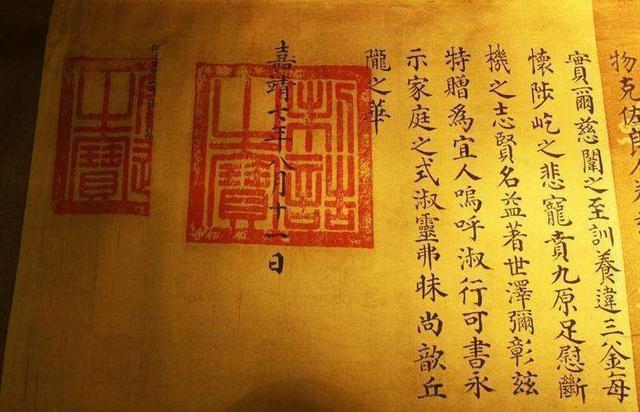 物克佐
實爾慈闈之至訓養違三釜每
懷陟屺之悲寵賁九原足慰斷
機之志賢名益著世澤彌彰茲
特贈為宜人嗚呼淑行可書永
示家庭之式淑靈弗昧尚歆丘
隴之華
嘉靖七年八月十一日
制誥
之寶
之寶